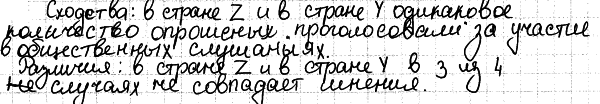 Сходства: в стране Z и в стране Y одинаковое
количество опрошеных проголосовали за участие
в общественных слушаньях.
Различия: в стране Z и в стране Y в 3 из 4
случаях не совпадает мнения.